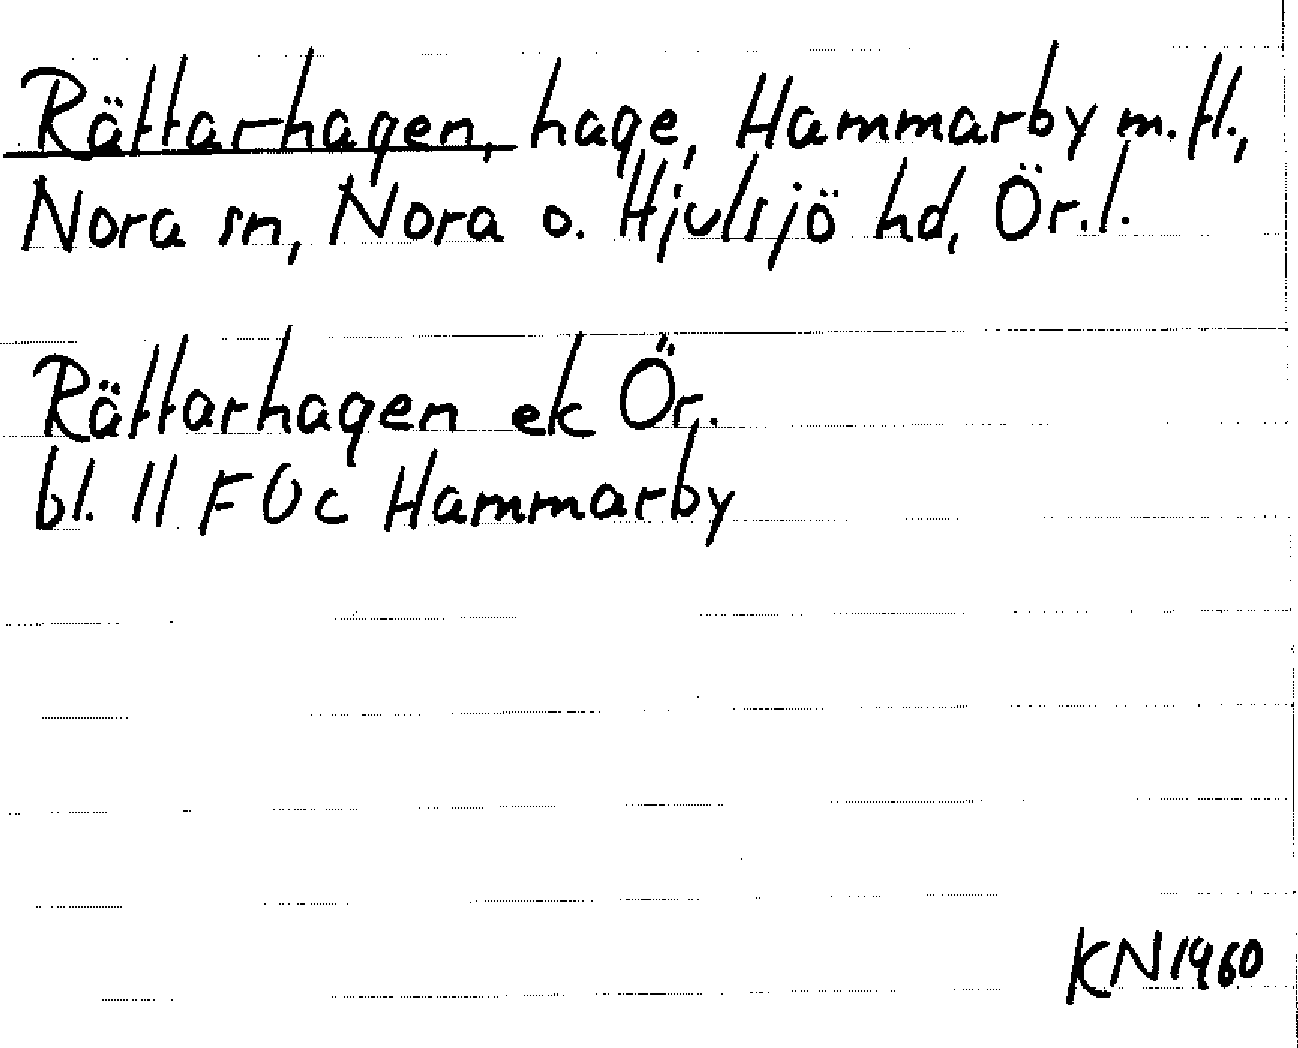 Rättarhagen, hage, Hammarby m.fl.,
Nora sn, Nora o. Hjulsjö hd, Ör.l.
Rättarhagen ek Ör.
bl. 11 F 0c Hammarby
KN 1960